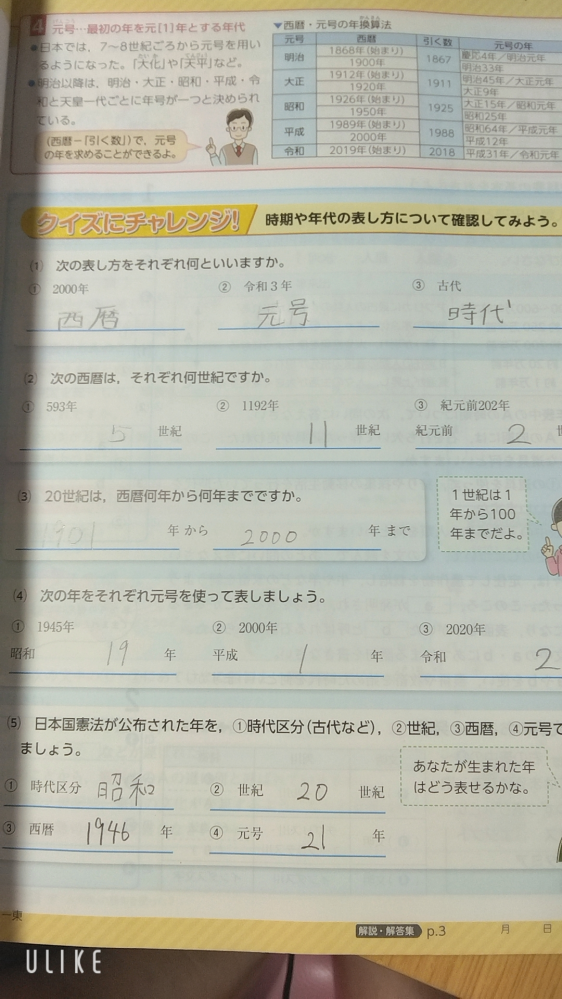 4 元号…最初の年を元[1]年とする年代
●日本では，7～8世紀ごろから元号を用い
るようになった。「大化」や「天平」など。
●明治以降は，明治・大正・昭和・平成・令
和と天皇一代ごとに年号が一つと決められ
ている。
(西暦－「引く数」)で，元号
の年を求めることができるよ。
▼西暦・元号の年換算法
元号 西暦 引く数 元号の年
明治 1868年(始まり) 1867 慶応4年／明治元年
1900年 明治33年
大正 1912年(始まり) 1911 明治45年／大正元年
1920年 大正9年
昭和 1926年(始まり) 1925 大正15年／昭和元年
1950年 昭和25年
平成 1989年(始まり) 1988 昭和64年／平成元年
2000年 平成12年
令和 2019年(始まり) 2018 平成31年／令和元年
クイズにチャレンジ! 時期や年代の表し方について確認してみよう。
(1) 次の表し方をそれぞれ何といいますか。
① 2000年 ② 令和3年 ③ 古代
西暦 元号 時代
(2) 次の西暦は，それぞれ何世紀ですか。
① 593年 ② 1192年 ③ 紀元前202年
5 世紀 11 世紀 紀元前 2
(3) 20世紀は，西暦何年から何年までですか。
1901 年から 2000 年まで
1世紀は1
年から100
年までだよ。
(4) 次の年をそれぞれ元号を使って表しましょう。
① 1945年 ② 2000年 ③ 2020年
昭和 19 年 平成 1 年 令和 2
(5) 日本国憲法が公布された年を，①時代区分(古代など)，②世紀，③西暦，④元号で
ましょう。
① 時代区分 昭和 ② 世紀 20 世紀
③ 西暦 1946 年 ④ 元号 21 年
あなたが生まれた年
はどう表せるかな。
一東
解説・解答集 p.3 月 日
ULIKE